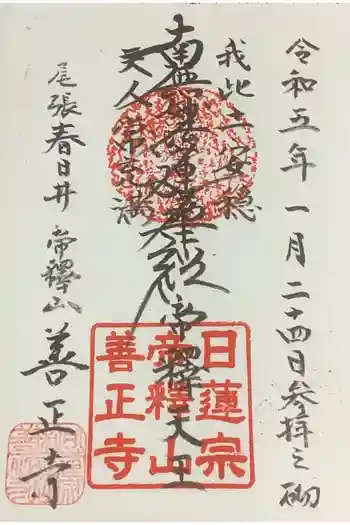 令和五年一月二十四日参拝之砌
我此土安穏
天人常充満
南無妙法蓮華経
帝釋天王
尾張春日井 帝釋山 善正寺
日蓮宗
帝釋山
善正寺